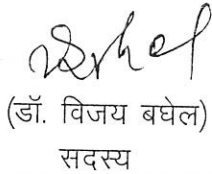 (डॉ. विजय बघेल)
सदस्य